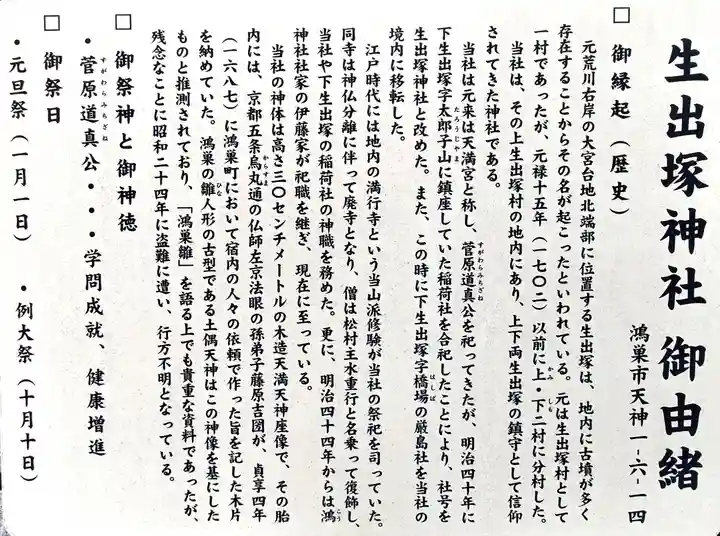 生出塚神社 御由緒
鴻巣市天神一-六-一四
□ 御縁起（歴史）
元荒川右岸の大宮台地北端部に位置する生出塚は、地内に古墳が多く
存在することからその名が起こったといわれている。元は生出塚村として
一村であったが、元禄十五年（一七〇二）以前に上・下二村に分村した。
当社は、その上生出塚村の地内にあり、上下両生出塚の鎮守として信仰
されてきた神社である。
当社は元来は天満宮と称し、菅原道真公を祀ってきたが、明治四十年に
下生出塚字太郎子山に鎮座していた稲荷社を合祀したことにより、社号を
生出塚神社と改めた。また、この時に下生出塚字橋場の厳島社を当社の
境内に移転した。
江戸時代には地内の満行寺という当山派修験が当社の祭祀を司っていた。
同寺は神仏分離に伴って廃寺となり、僧は松村主水重行と名乗って復飾し、
当社や下生出塚の稲荷社の神職を務めた。更に、明治四十四年からは鴻
神社社家の伊藤家が祀職を継ぎ、現在に至っている。
当社の神体は高さ三〇センチメートルの木造天満天神座像で、その胎
内には、京都五条烏丸通の仏師左京法眼の孫弟子藤原吉圀が、貞享四年
（一六八七）に鴻巣町において宿内の人々の依頼で作った旨を記した木片
を納めていた。鴻巣の雛人形の古型である土偶天神はこの神像を基にした
ものと推測されており、「鴻巣雛」を語る上でも貴重な資料であったが、
残念なことに昭和二十四年に盗難に遭い、行方不明となっている。
□ 御祭神と御神徳
・菅原道真公・・・学問成就、健康増進
□ 御祭日
・元旦祭（一月一日） ・例大祭（十月十日）